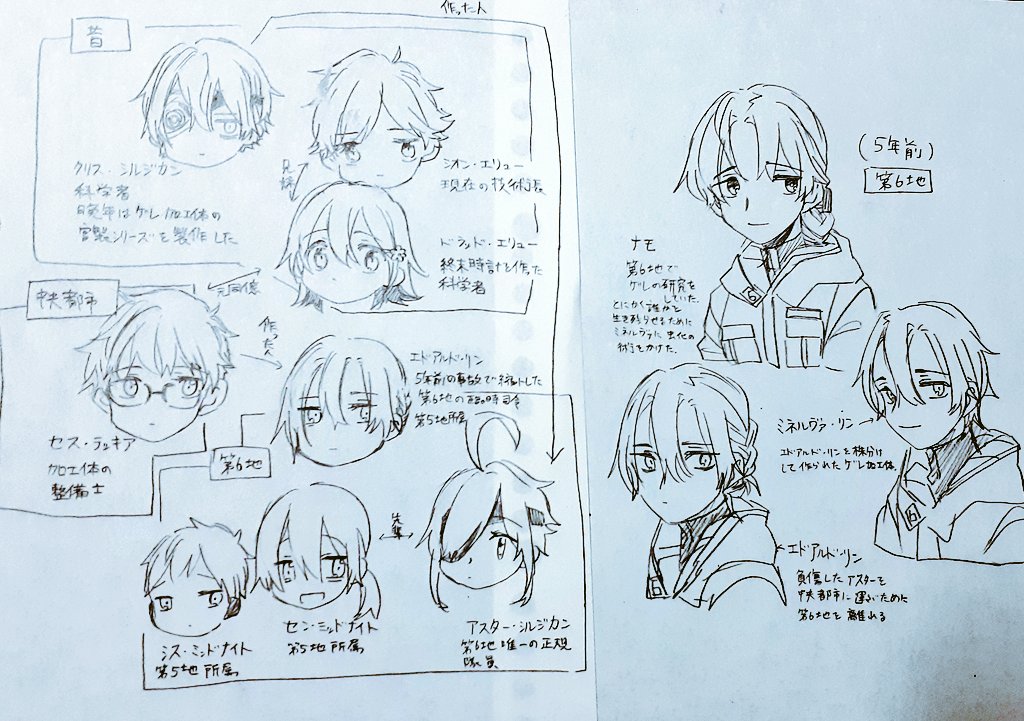 作った人
昔
クリス・シルジカン
科学者
晩年はゲレ加工体の
官製シリーズを製作した
兄妹
シオン・エリュー
現在の技術張
エリュー
終末時計を作った
科学者
元同僚
中央都市
作った人
セス・ラッキア
加工体の
整備士
エドアルド・リン
5年前の事故で
第6地の臨時司令
第5地所属
第6地
シス・ミッドナイト
第5地所属
セン・ミッドナイト
第5地所属
先輩
アスター・シルジカン
第6地唯一の正規
隊員
(5年前)
第6地
ナモ
第6地で
ゲレの研究を
していた。
とにかく誰かを
生き残らせるために
ミネルヴァに虫化の
術をかけた.
6
ミネルヴァ・リン
エドアルド・リンを株分け
して作られたゲレ加工体
6
6
エドアルド・リン
負傷したアスターを
中央都市に運ぶために
第6地を離れる